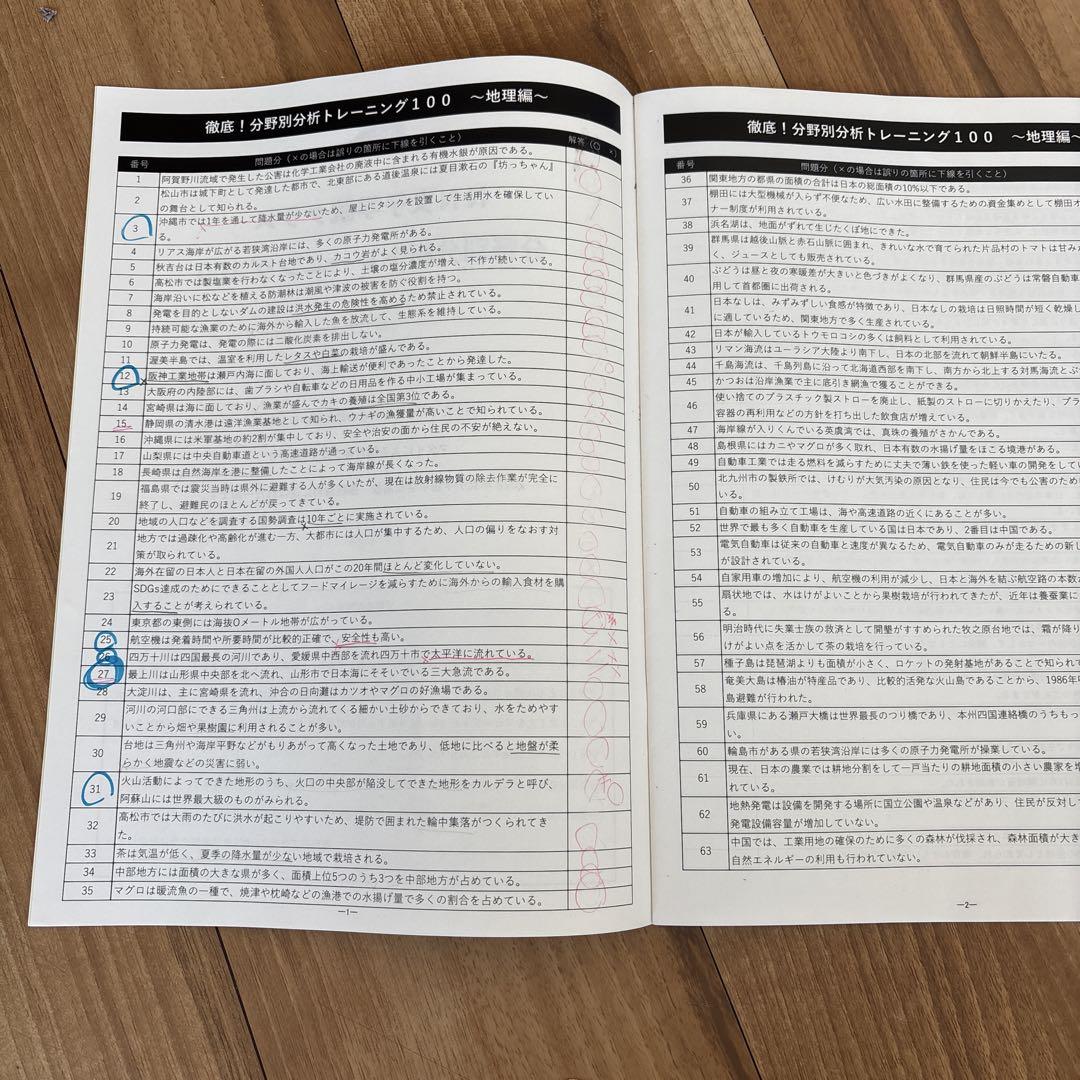 徹底！分野別分析トレーニング１００　～地理編～
番号 問題分（×の場合は誤りの箇所に下線を引くこと） 解答（〇　×）
1 阿賀野川流域で発生した公害は化学工業会社の廃液中に含まれる有機水銀が原因である。
2 松山市は城下町として発達した都市で、北東部にある道後温泉には夏目漱石の『坊っちゃん』
の舞台として知られる。
3 沖縄市では1年を通して降水量が少ないため、屋上にタンクを設置して生活用水を確保してい
る。
4 リアス海岸が広がる若狭湾沿岸には、多くの原子力発電所がある。
5 秋吉台は日本有数のカルスト台地であり、カコウ岩がよく見られる。
6 高松市では製塩業を行わなくなったことにより、土壌の塩分濃度が増え、不作が続いている。
7 海岸沿いに松などを植える防潮林は潮風や津波の被害を防ぐ役割を持つ。
8 発電を目的としないダムの建設は洪水発生の危険性を高めるため禁止されている。
9 持続可能な漁業のために海外から輸入した魚を放流して、生態系を維持している。
10 原子力発電は、発電の際には二酸化炭素を排出しない。
11 渥美半島では、温室を利用したレタスや白菜の栽培が盛んである。
12 阪神工業地帯は瀬戸内海に面しており、海上輸送が便利であったことから発達した。
13 大阪府の内陸部には、歯ブラシや自転車などの日用品を作る中小工場が集まっている。
14 宮崎県は海に面しており、漁業が盛んでカキの養殖は全国第3位である。
15 静岡県の清水港は遠洋漁業基地として知られ、ウナギの漁獲量が高いことで知られている。
16 沖縄県には米軍基地の約2割が集中しており、安全や治安の面から住民の不安が絶えない。
17 山梨県には中央自動車道という高速道路が通っている。
18 長崎県は自然海岸を港に整備したことによって海岸線が長くなった。
19 福島県では震災当時は県外に避難する人が多くいたが、現在は放射線物質の除去作業が完全に
終了し、避難民のほとんどが戻ってきている。
20 地域の人口などを調査する国勢調査は10年ごとに実施されている。
21 地方では過疎化や高齢化が進む一方、大都市には人口が集中するため、人口の偏りをなおす対
策が取られている。
22 海外在留の日本人と日本在留の外国人人口がこの20年間ほとんど変化していない。
23 SDGs達成のためにできることとしてフードマイレージを減らすために海外からの輸入食材を購
入することが考えられている。
24 東京都の東側には海抜0メートル地帯が広がっている。
25 航空機は発着時間や所要時間が比較的正確で、安全性も高い。
26 四万十川は四国最長の河川であり、愛媛県中西部を流れ四万十市で太平洋に流れている。
27 最上川は山形県中央部を北へ流れ、山形市で日本海にそそいでいる三大急流である。
28 大淀川は、主に宮崎県を流れ、沖合の日向灘はカツオやマグロの好漁場である。
29 河川の河口部にできる三角州は上流から流れてくる細かい土砂からできており、水をためやす
いことから畑や果樹園に利用されることが多い。
30 台地は三角州や海岸平野などがもりあがって高くなった土地であり、低地に比べると地盤が柔
らかく地震などの災害に弱い。
31 火山活動によってできた地形のうち、火口の中央部が陥没してできた地形をカルデラと呼び、
阿蘇山には世界最大級のものがみられる。
32 高松市では大雨のたびに洪水が起こりやすいため、堤防で囲まれた輪中集落がつくられてき
た。
33 茶は気温が低く、夏季の降水量が少ない地域で栽培される。
34 中部地方には面積の大きな県が多く、面積上位5つのうち3つを中部地方が占めている。
35 マグロは暖流魚の一種で、焼津や枕崎などの漁港での水揚げ量で多くの割合を占めている。
―1―
徹底！分野別分析トレーニング１００　～地理編～
番号 問題分（×の場合は誤りの箇所に下線を引くこと）
36 関東地方の都県の面積の合計は日本の総面積の10%以下である。
37 棚田には大型機械が入らず不便なため、広い水田に整備するための資金集めとして棚田オ
ーナー制度が利用されている。
38 浜名湖は、地面がずれて生じたくぼ地にできた。
39 群馬県は越後山脈と赤石山脈に囲まれ、きれいな水で育てられた片品村のトマトは甘み
く、ジュースとしても販売されている。
40 ぶどうは昼と夜の寒暖差が大きいと色づきがよくなり、群馬県産のぶどうは常磐自動車
用して首都圏に出荷される。
41 日本なしは、みずみずしい食感が特徴であり、日本なしの栽培は日照時間が短く乾燥し
に適しているため、関東地方で多く生産されている。
42 日本が輸入しているトウモロコシの多くは飼料として利用される。
43 リマン海流はユーラシア大陸より南下し、日本の北部を流れて朝鮮半島にいたる。
44 千島海流は、千島列島に沿って北海道西部を南下し、南方から北上する対馬海流とぶ
45 かつおは沿岸漁業で主に底引き網漁で獲ることができる。
46 使い捨てのプラスチック製ストローを廃止し、紙製のストローに切りかえたり、プラ
容器の再利用などの方針を打ち出した飲食店が増えている。
47 海岸線が入りくんでいる英虞湾では、真珠の養殖がさかんである。
48 島根県ではカニやマグロが多く取れ、日本有数の水揚げ量をほこる境港がある。
49 自動車工業では走る燃料を減らすために丈夫で薄い鉄を使った軽い車の開発をしてい
50 北九州市の製鉄所では、けむりが大気汚染の原因となり、住民は今でも公害のため
いる。
51 自動車の組み立て工場は、海や高速道路の近くにあることが多い。
52 世界で最も多く自動車を生産している国は日本であり、2番目は中国である。
53 電気自動車は従来の自動車と速度が異なるため、電気自動車のみが走るための新し
が設計されている。
54 自家用車の増加により、航空機の利用が減少し、日本と海外を結ぶ航空路の本数
55 扇状地では、水はけがよいことから果樹栽培が行われてきたが、近年は養蚕業に
る。
56 明治時代に失業士族の救済として開墾がすすめられた牧之原台地では、霜が降り
けがよい点を活かして茶の栽培を行っている。
57 種子島は琵琶湖よりも面積が小さく、ロケットの発射基地があることで知られて
58 奄美大島は椿油が特産品であり、比較的活発な火山島であることから、1986年
島避難が行われた。
59 兵庫県にある瀬戸大橋は世界最長のつり橋であり、本州四国連絡橋のうちもっ
い。
60 輪島市がある県の若狭湾沿岸には多くの原子力発電所が操業している。
61 現在、日本の農業では耕地分割をして一戸当たりの耕地面積の小さい農家を増
れている。
62 地熱発電は設備を開発する場所に国立公園や温泉などがあり、住民が反対して
発電設備容量が増加していない。
63 中国では、工業用地の確保のために多くの森林が伐採され、森林面積が大き
自然エネルギーの利用も行われていない。
―2―